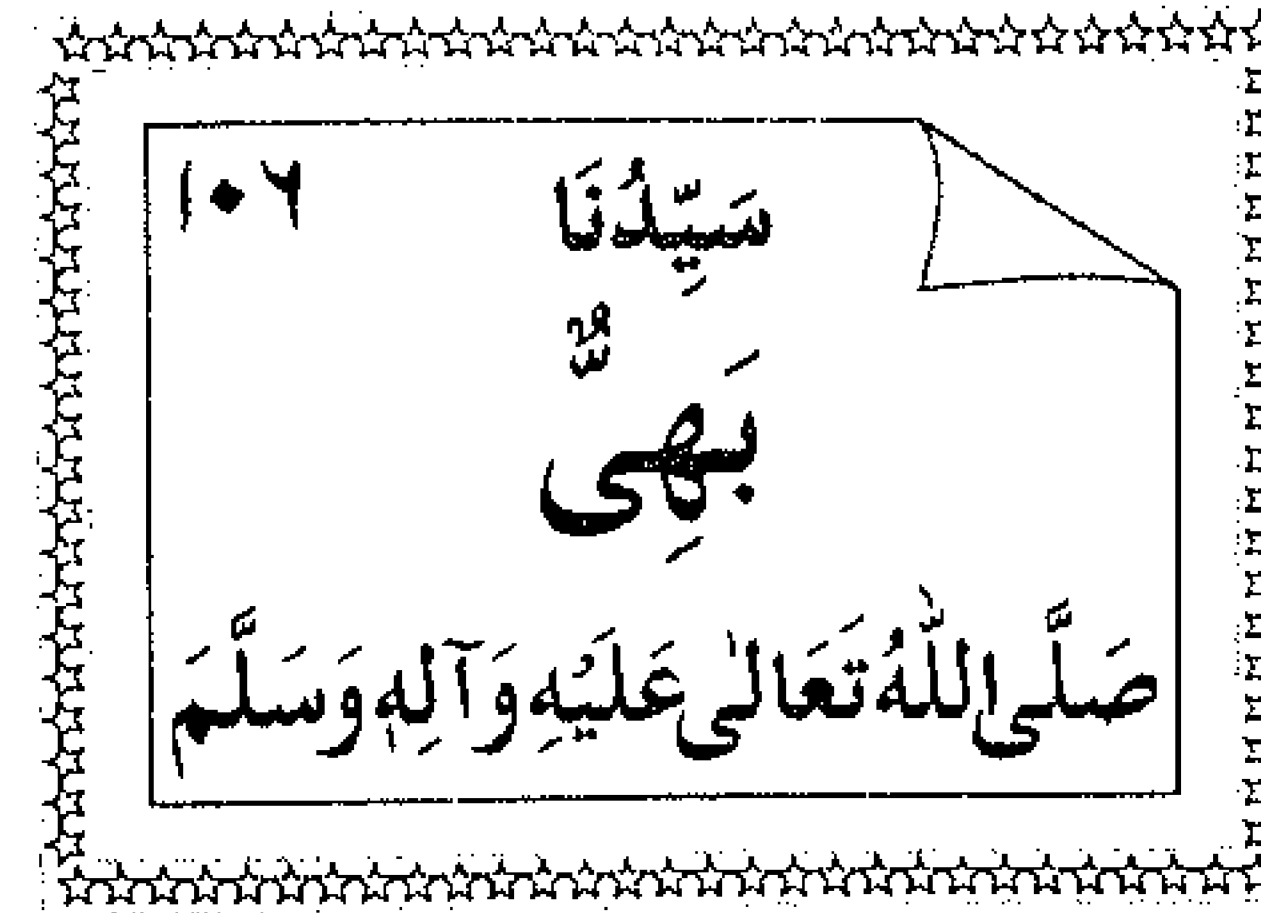 ۱۰۶
سَيِّدُنَا
بَهِیٌّ
صَلَّى اللّٰهُ تَعَالىٰ عَلَيْهِ وَآلِهٖ وَسَلَّمَ